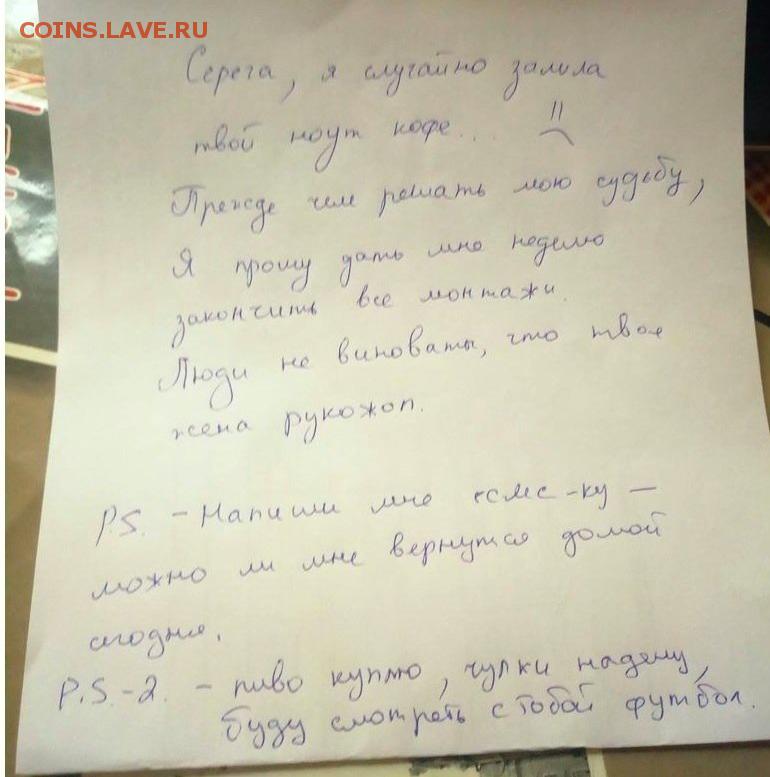 COINS.LAVE.RU
Серега, я случайно залила
твой ноут кофе... =(
Прежде чем решать мою судьбу,
Я прошу дать мне неделю
закончить все монтажи.
Люди не виноваты, что твоя
жена рукожоп.
P.S. - Напиши мне смс-ку -
можно ли мне вернутся домой
сегодня.
P.S.-2. - пиво куплю, чулки надену,
буду смотреть с тобой футбол.